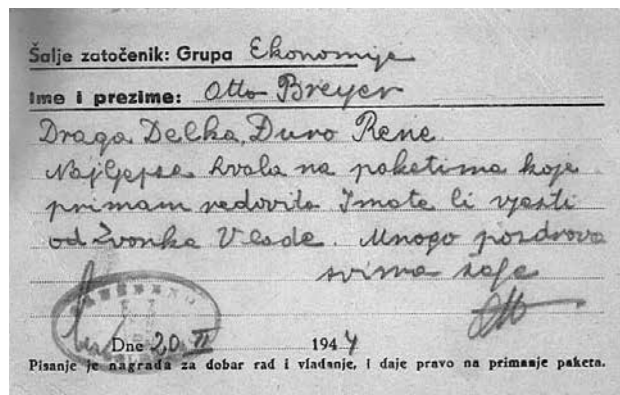 Šalje zatočenik: Grupa Ekonomije
Ime i prezime: Otto Breyer
Draga Delka, Đuro Rene
Najljepša hvala na paketima koje
primam redovito Imate li vjesti
od Zvonka Vlade. Mnogo pozdrava
svima šalje
Otto
Dne 20 II 1944
Pisanje je nagrada za dobar rad i vladanje, i daje pravo na primanje paketa.